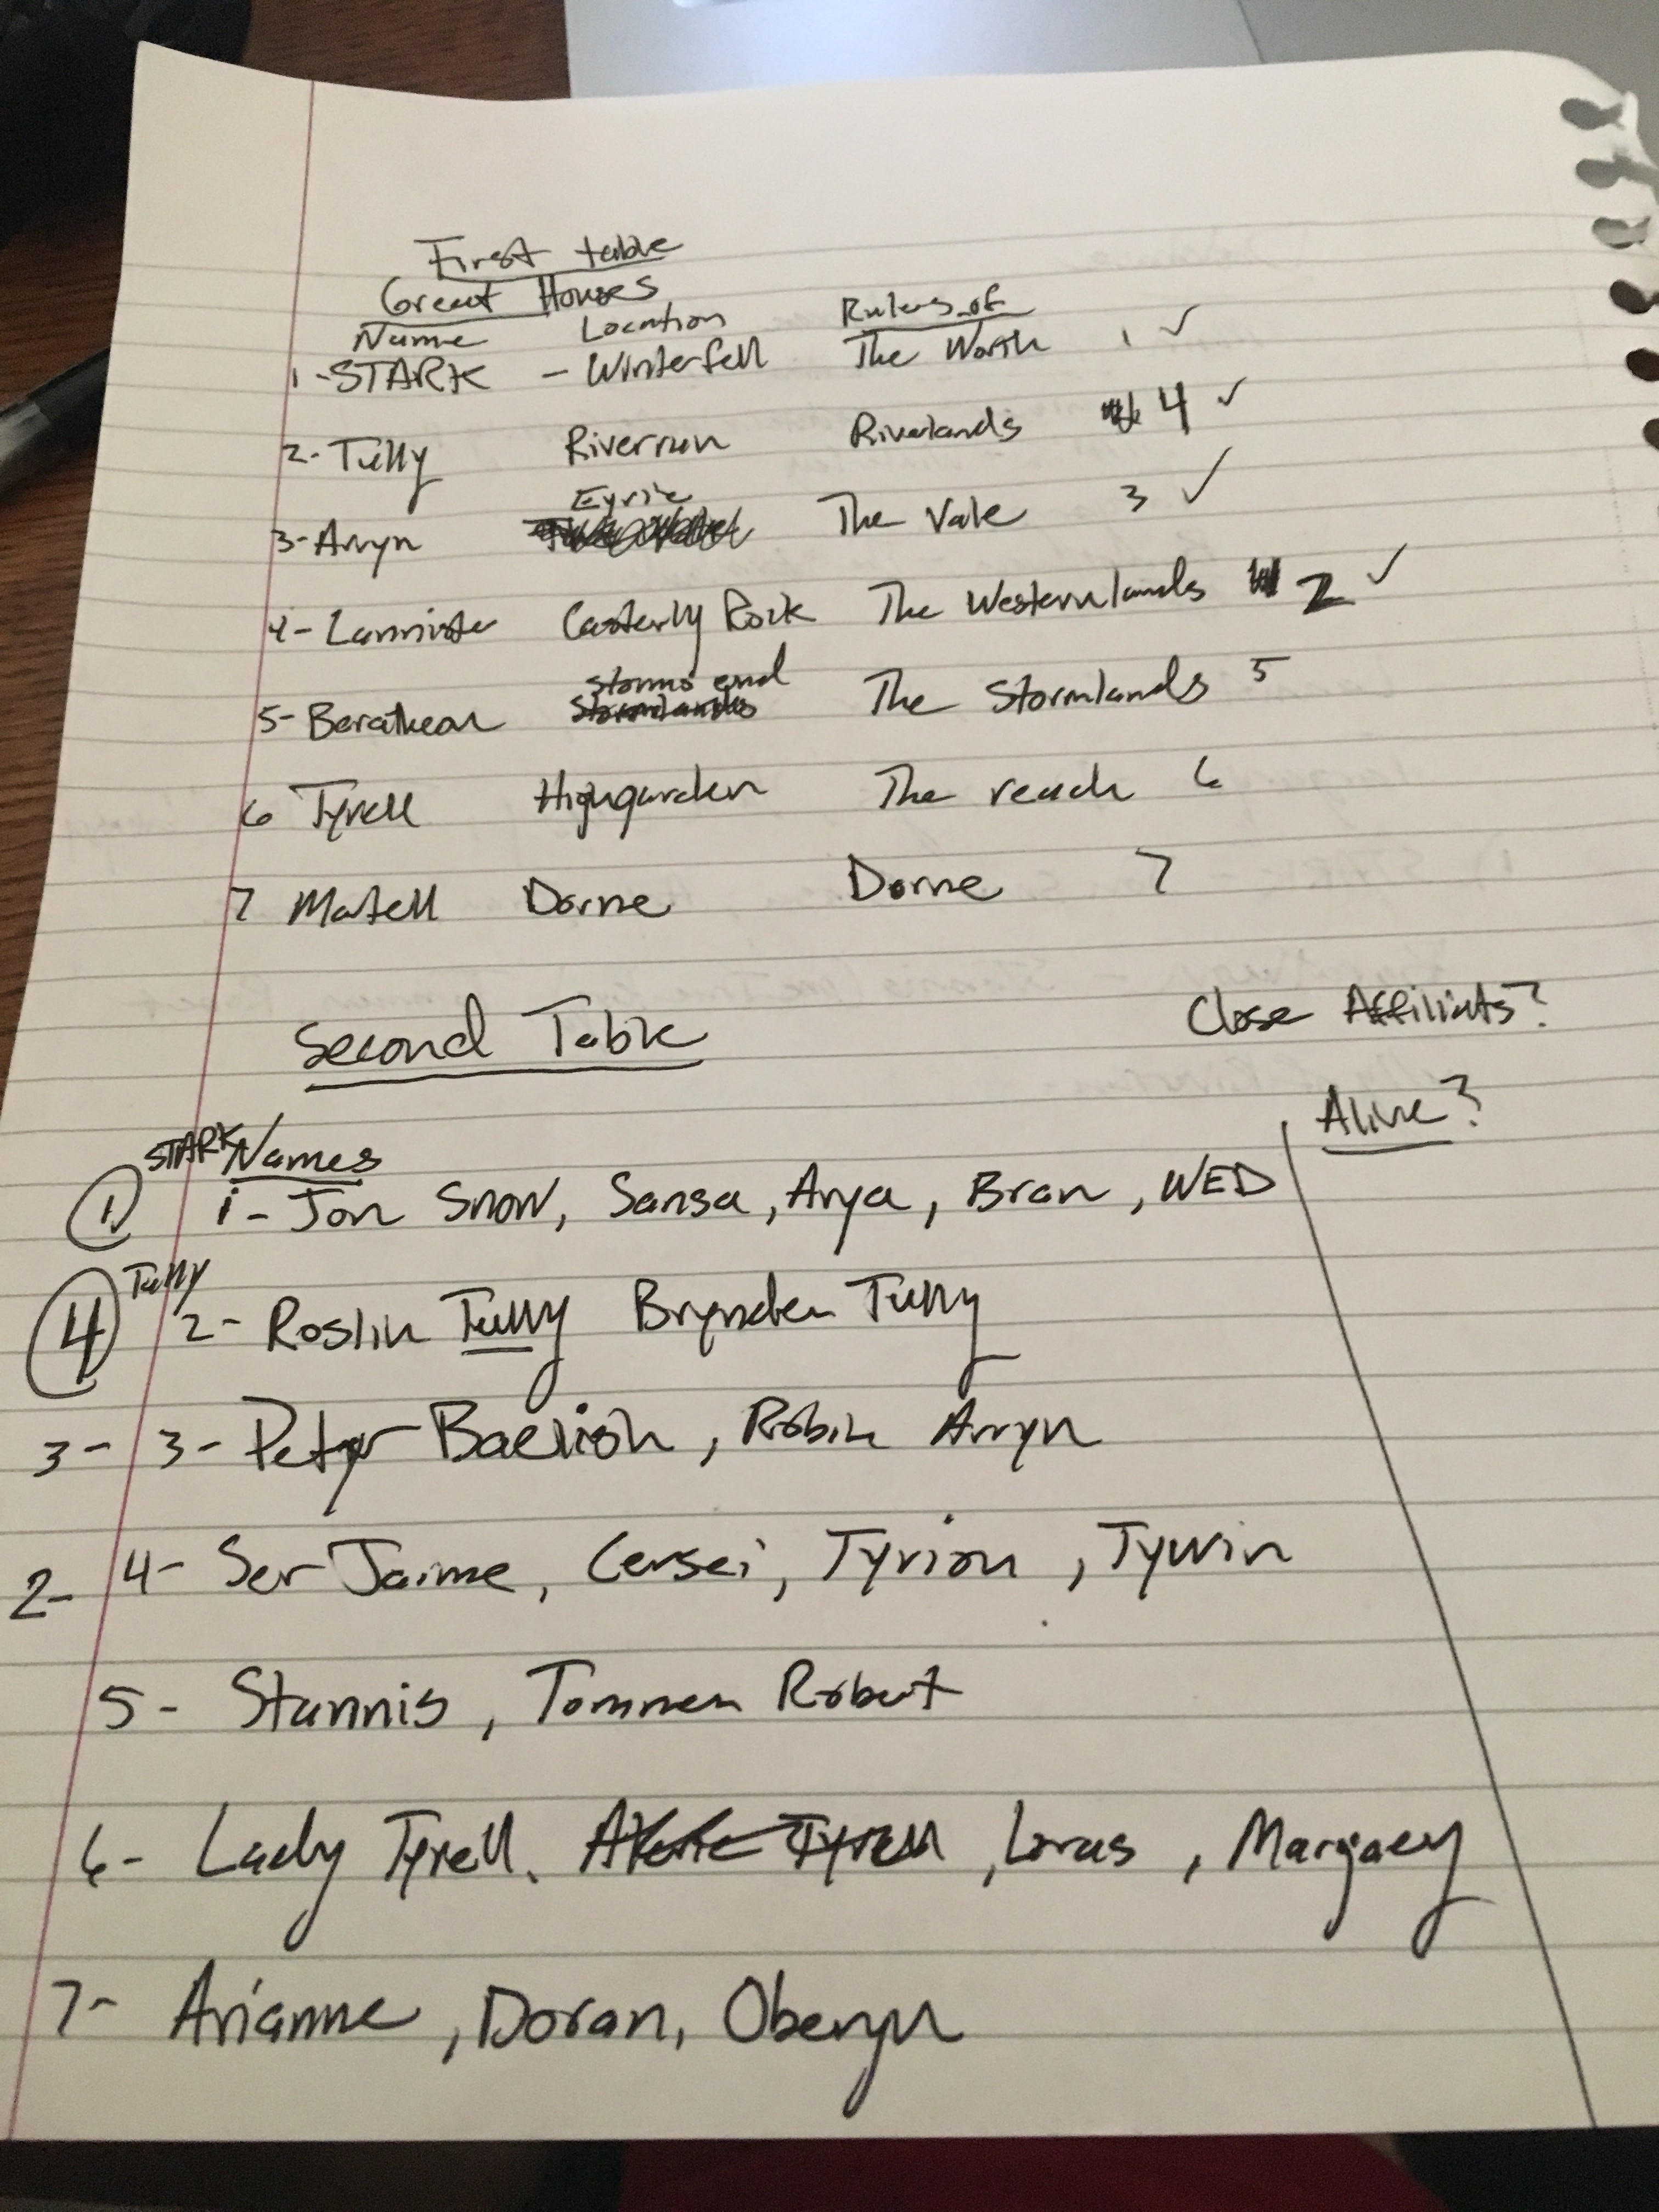 First table
Great Houses
Name Location Rulers of
1-STARK - Winterfell The North 1 ✓
2-Tully Riverrun Riverlands 4 ✓
Eyrie
3-Arryn The Vale 3 ✓
4-Lannister Casterly Rock The Westernlands 2 ✓
storms end
5-Beratheon Stormlands The Stormlands 5
6 Tyrell Highgarden The reach 6
7 Matell Dorne Dorne 7
Second Table Close Affiliats?
Alive?
STARK Names
1 1- Jon Snow, Sansa, Arya, Bran, NED
Tully
4 2- Roslin Tully Brynden Tully
3- 3- Petyr Baelish, Robin Arryn
2- 4- Ser Jaime, Cersei, Tyrion, Tywin
5- Stannis, Tommen Robert
6- Lady Tyrell, Tyrell, Loras, Margaey
7- Arianne, Doran, Oberyn